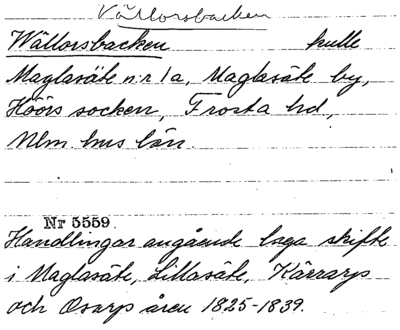 Vållorsbacken
Wållorsbacken kulle
Maglasäte n:r 1a, Maglasäte by,
Höörs socken, Frosta hd,
Mlm. hus län.
Nr 5559.
Handlingar angående laga skifte
i Maglasäte, Lillasäte, Kärrarp
och Osarp åren 1825-1839.